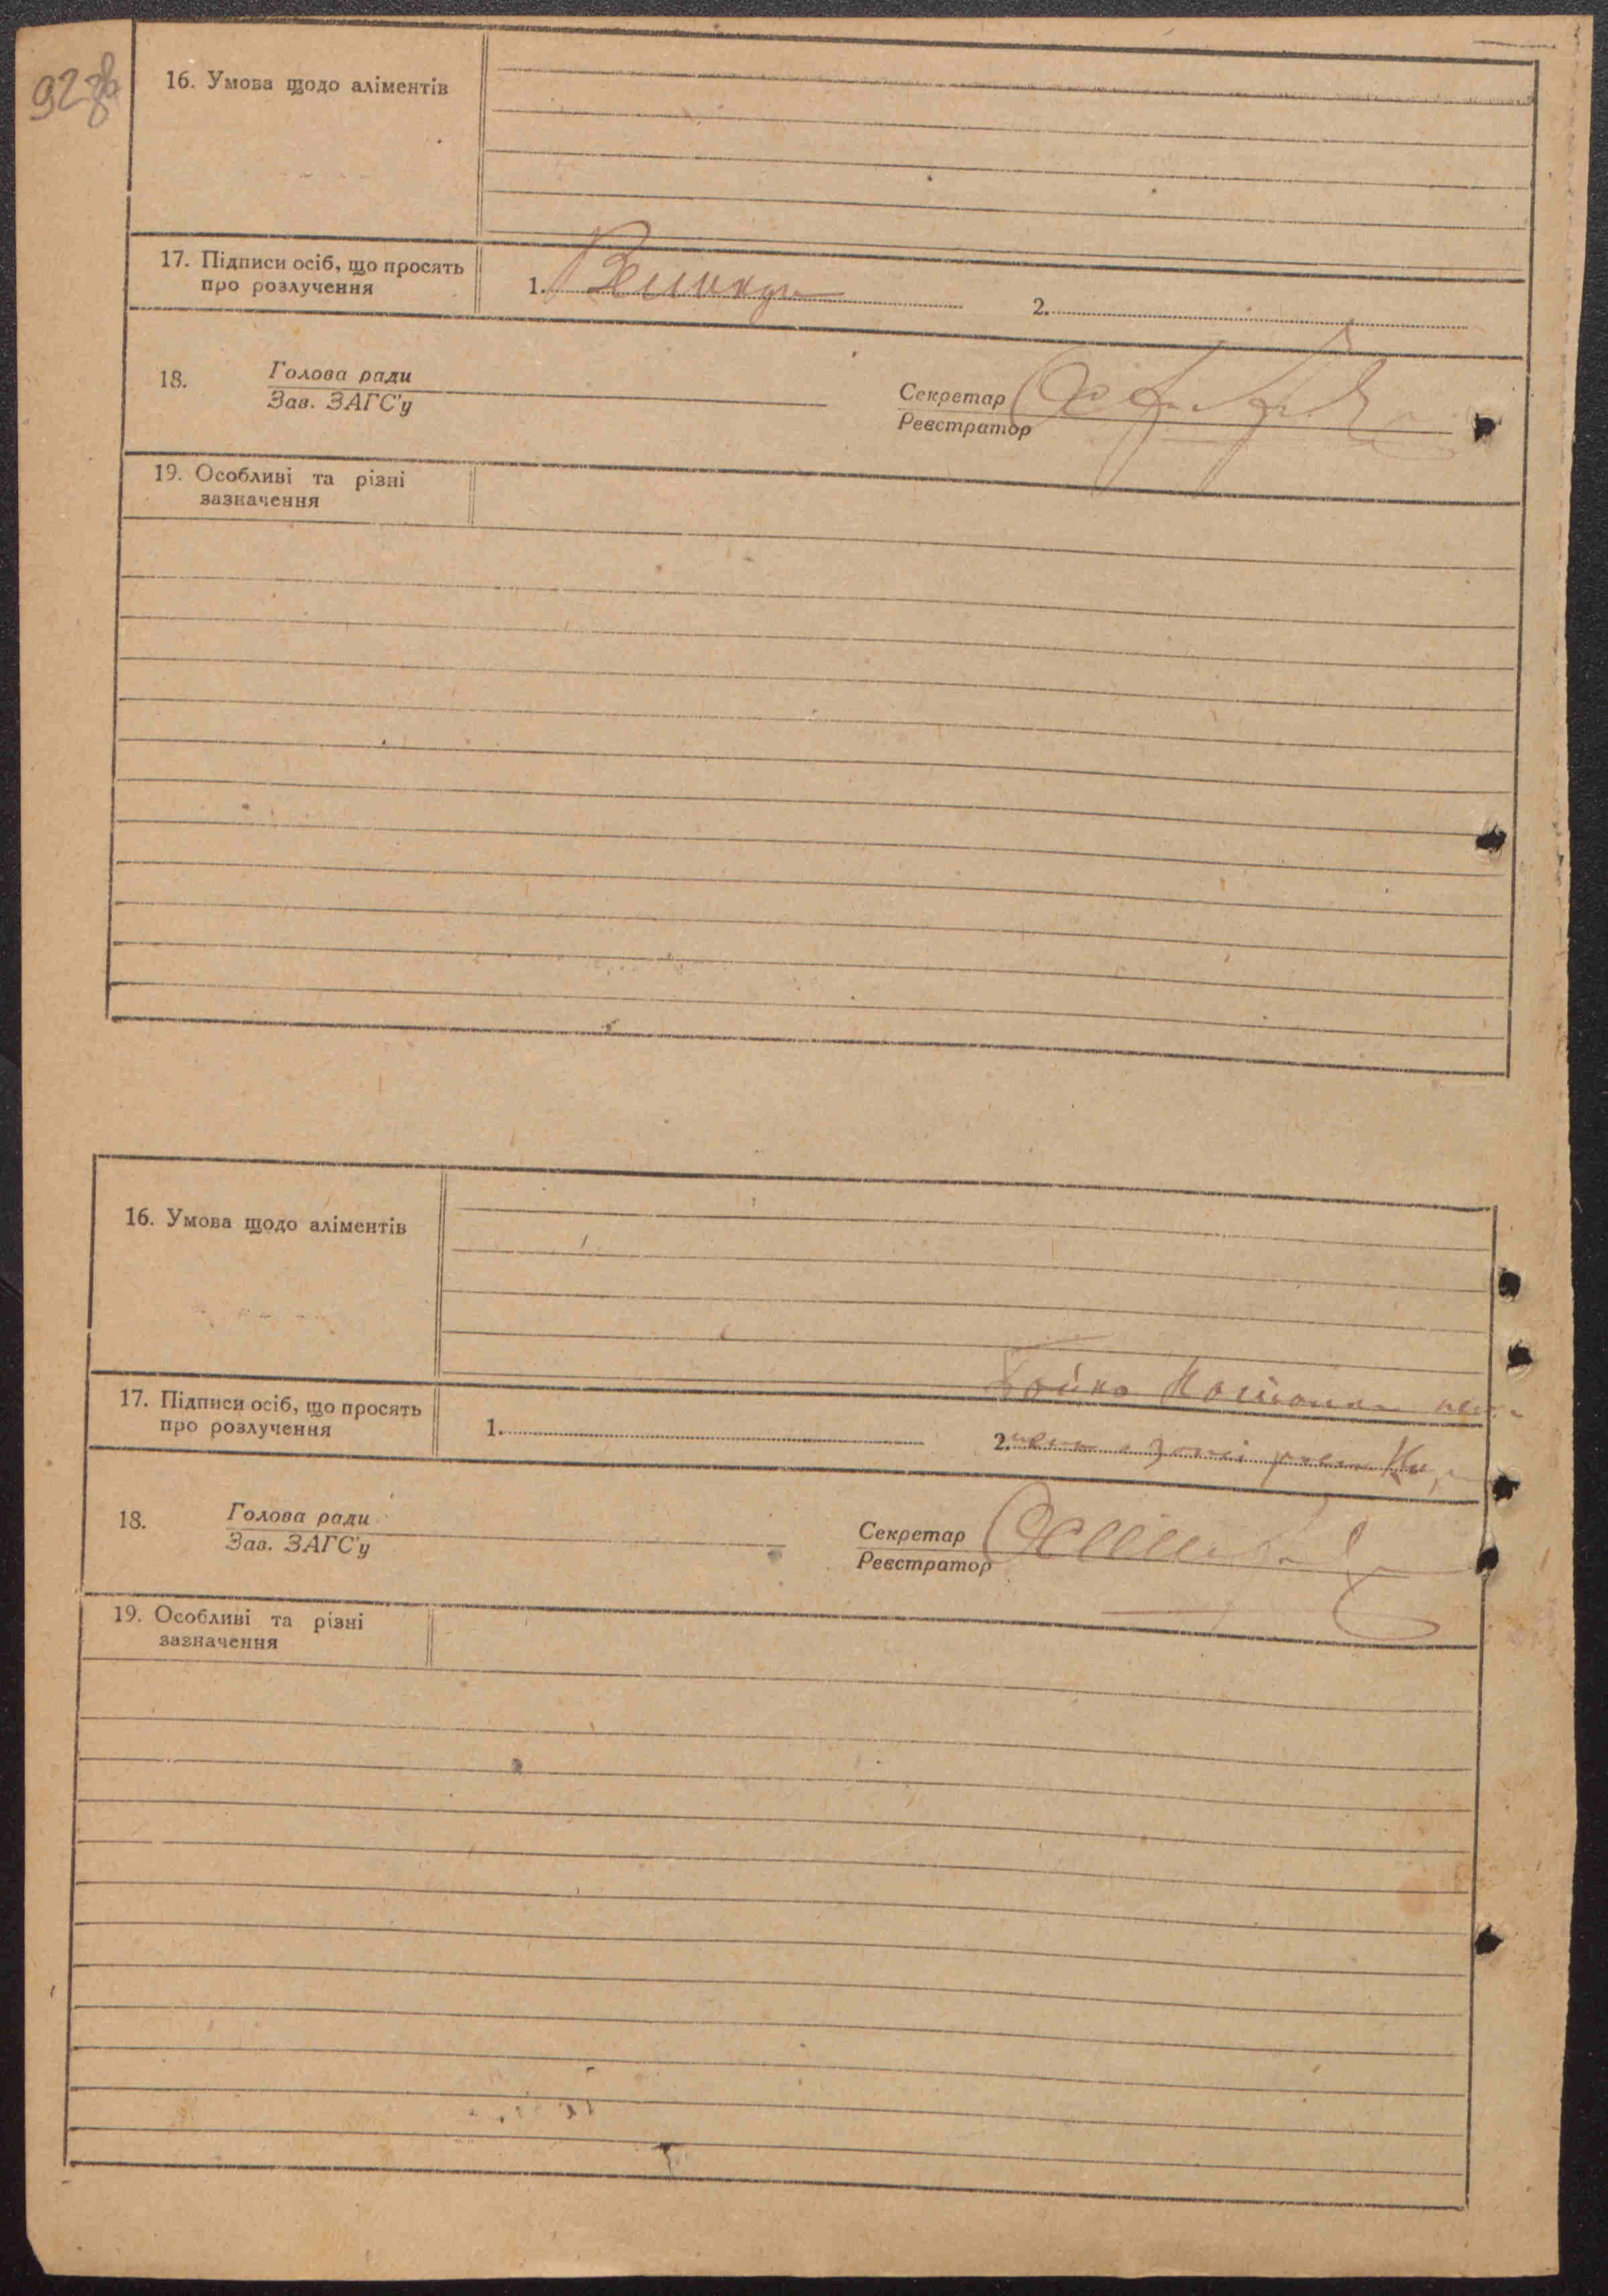 92 зв
16. Умова щодо аліментів
17. Підписи осіб, що просять
про розлучення
1.
2.
18.
Голова ради
Зав. ЗАГС'у
Секретар
Реєстратор
19. Особливі та різні
зазначення
16. Умова щодо аліментів
Бойко
17. Підписи осіб, що просять
про розлучення
1.
2.
18.
Голова ради
Зав. ЗАГС'у
Секретар
Реєстратор
19. Особливі та різні
зазначення